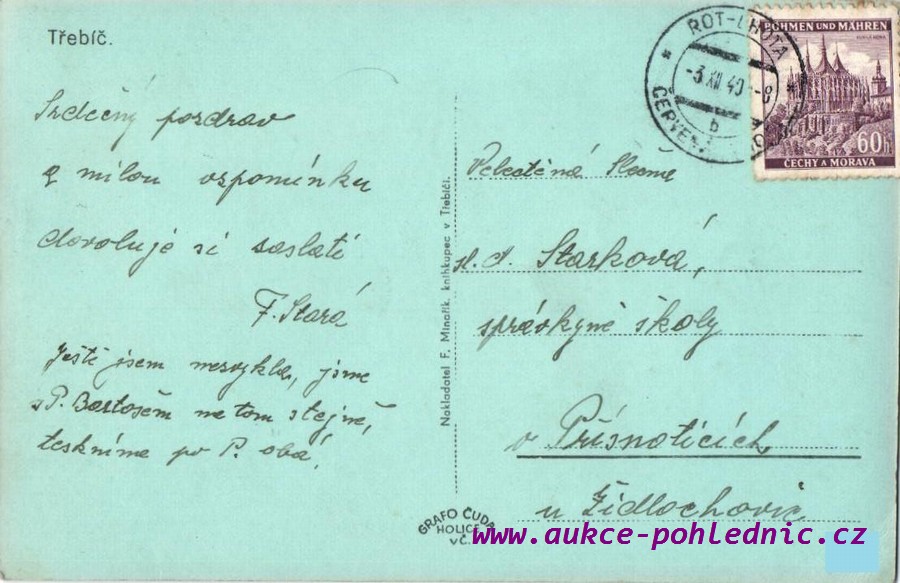 Třebíč.
Srdečný pozdrav
a milou vzpomínku
dovoluje si zaslati
F. Stará
Ještě jsem nezvykla, jsme
s P. Bartošem na tom stejně,
teskníme po P. obá.
Nakladatel F. Minařík, knihkupec v Třebíči.
GRAFO ČUDA
HOLICE
V Č.
ROT-LHOTA
-3.XII.40.-8
b
ČERVEN
BÖHMEN UND MÄHREN
60h
ČECHY A MORAVA
Velectěná Slečna
sl. A. Starková,
správkyně školy
v Přísnoticích
u Židlochovic
www.aukce-pohlednic.cz